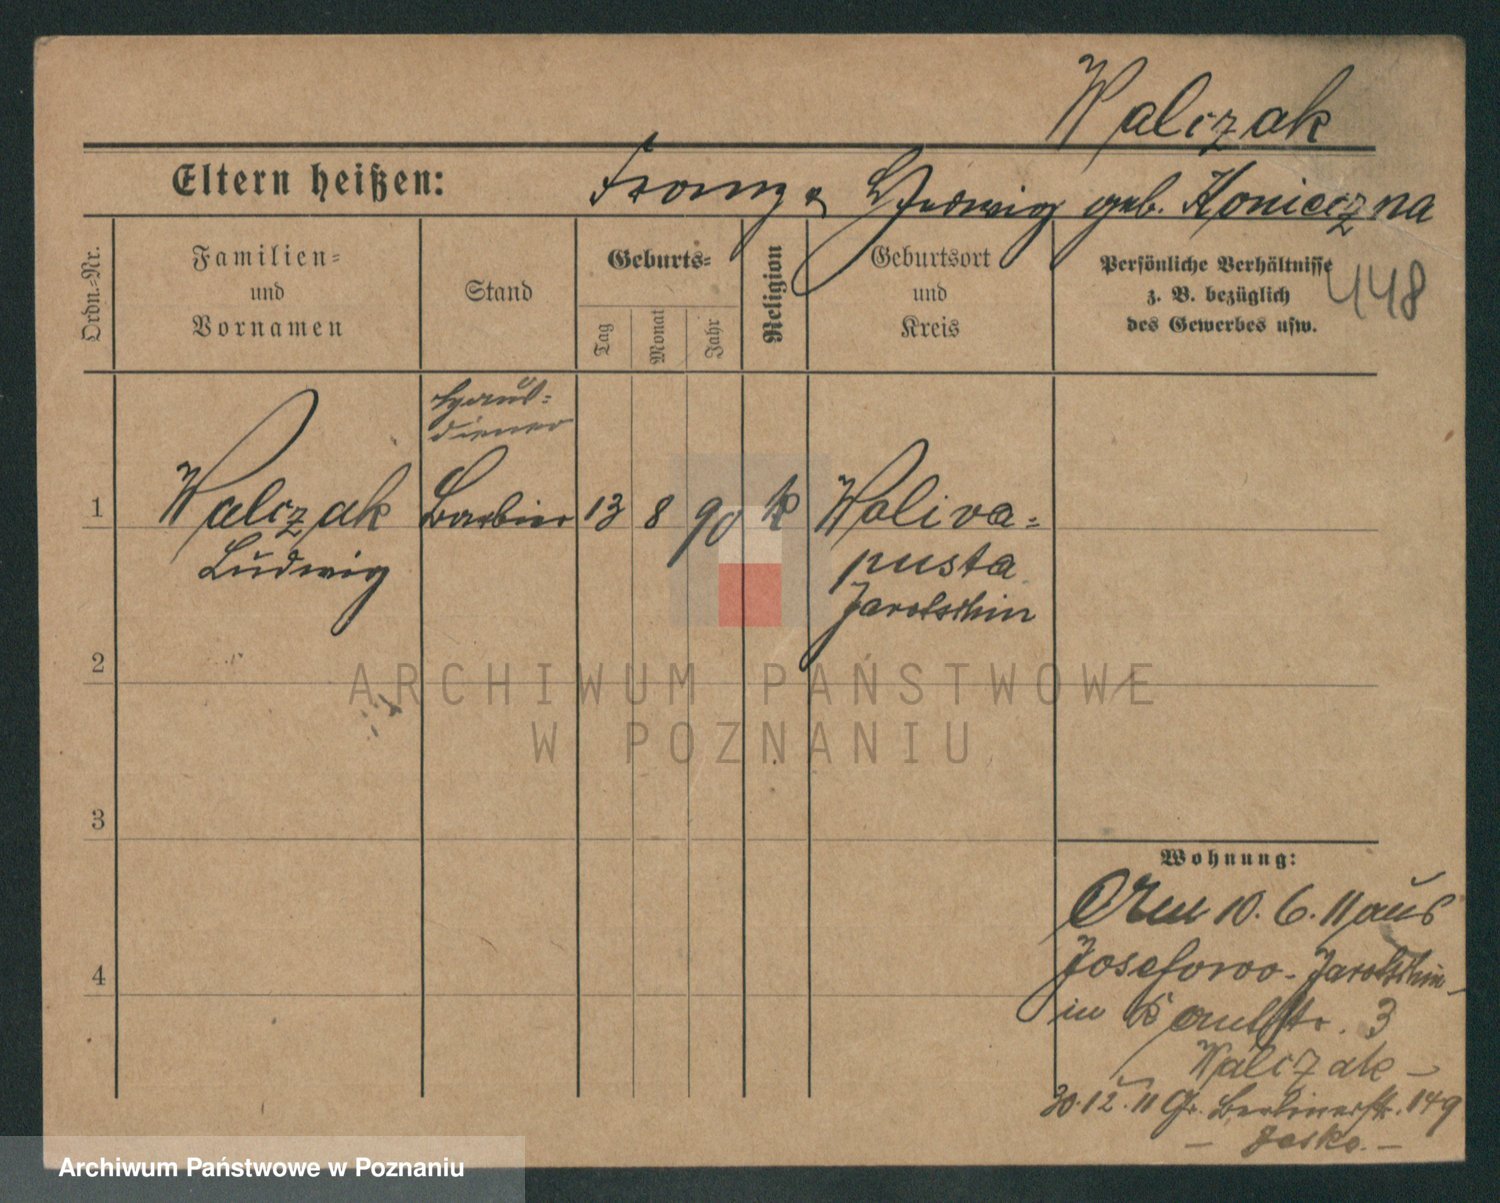 Walczak
Eltern heißen: Franz & Hedwig geb. Konieczna
Ordn.-Nr.
Familien-
und
Vornamen
Stand
Geburts-
Tag
Monat
Jahr
Religion
Geburtsort
und
Kreis
Persönliche Verhältnisse
z. B. bezüglich
des Gewerbes usw.
448
Haus-
diener
1 Walczak Barbier 13 8 90 k Woliva-
Ludwig pusta
Jarotschin
2
3
4
Wohnung:
Am 10. 6. 11 aus
Josefowo-Jarotschin
in Paulstr. 3
Walczak
30.12.11 Gr. Berlinerstr. 149
Josko.
ARCHIWUM PAŃSTWOWE
W POZNANIU
Archiwum Państwowe w Poznaniu